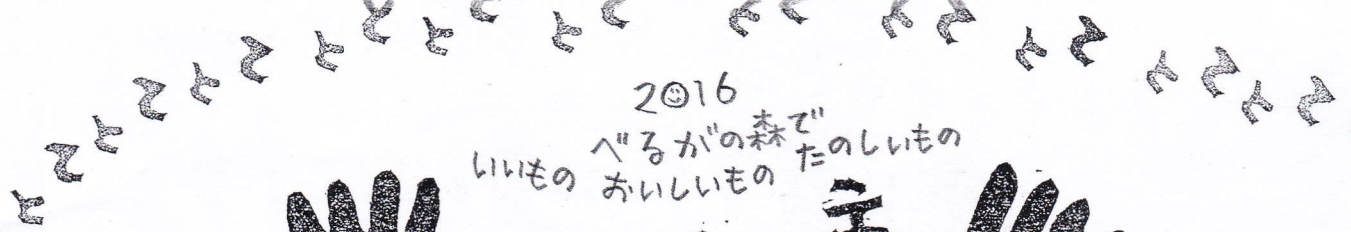 とてとてとてとてとてとてとてとてとてとてとて
2016
べるがの森で
いいもの おいしいもの たのしいもの